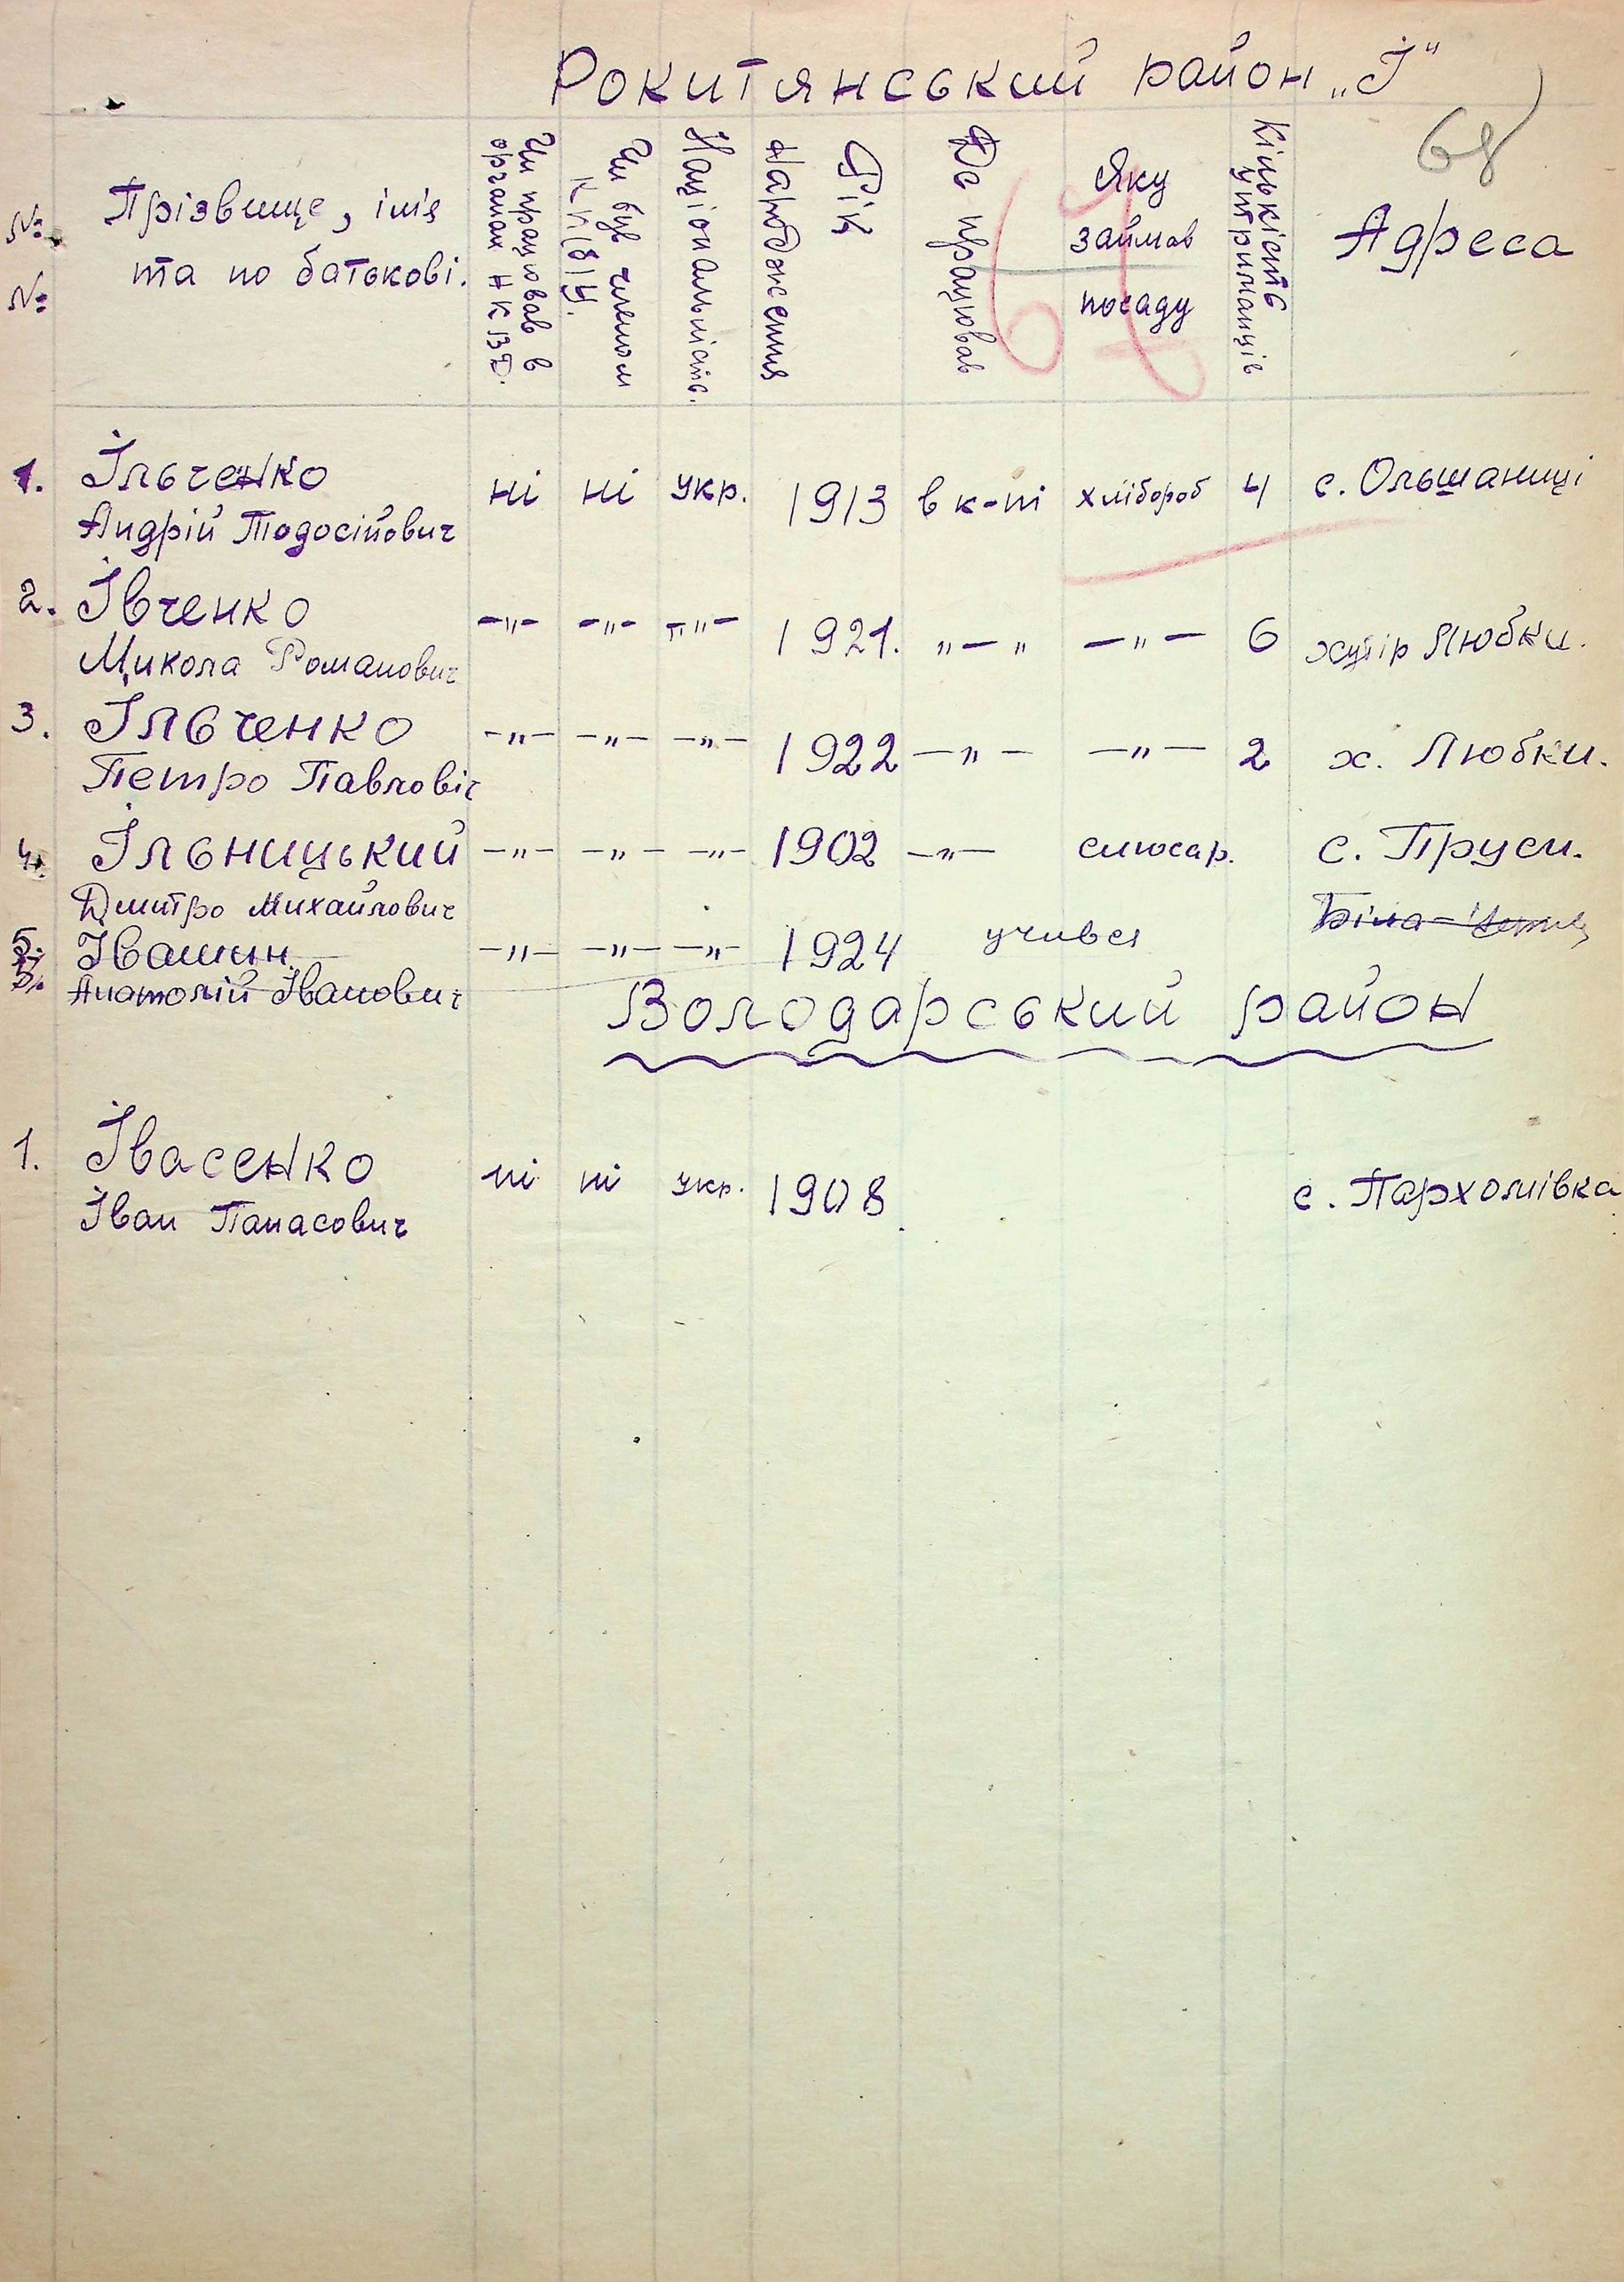 Рокитянський район „І"
68
67
№ №
Прізвище, імя
та по батькові.
Чи працював в
органах НКВД.
Чи був членом
КП(б)У.
Національність.
Рік
Народження
Де працював
Яку
займав
посаду
Кількість
утриманців
Адреса
1. Ільченко ні ні укр. 1913 в к-пі хлібороб 4 с. Ольшаниці
Андрій Тодосійович
2. Івченко -„- -„- -„- 1921. „-„ -„- 6 хутір Любки.
Микола Романович
3. Ільченко -„- -„- -„- 1922 -„- -„- 2 х. Любки.
Петро Павловіч
4. Ільницький -„- -„- -„- 1902 -„- слюсар. с. Пруси.
Дмитро Михайлович
5. Івашин -„- -„- -„- 1924 учився Біла-
Анатолій Іванович
Володарський район
1. Івасенко ні ні укр. 1908 с. Пархомівка
Іван Панасович